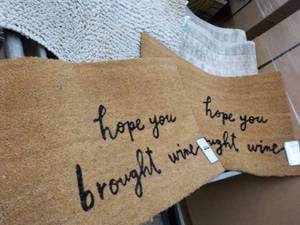 hope you
brought wine
hope you
ught wine